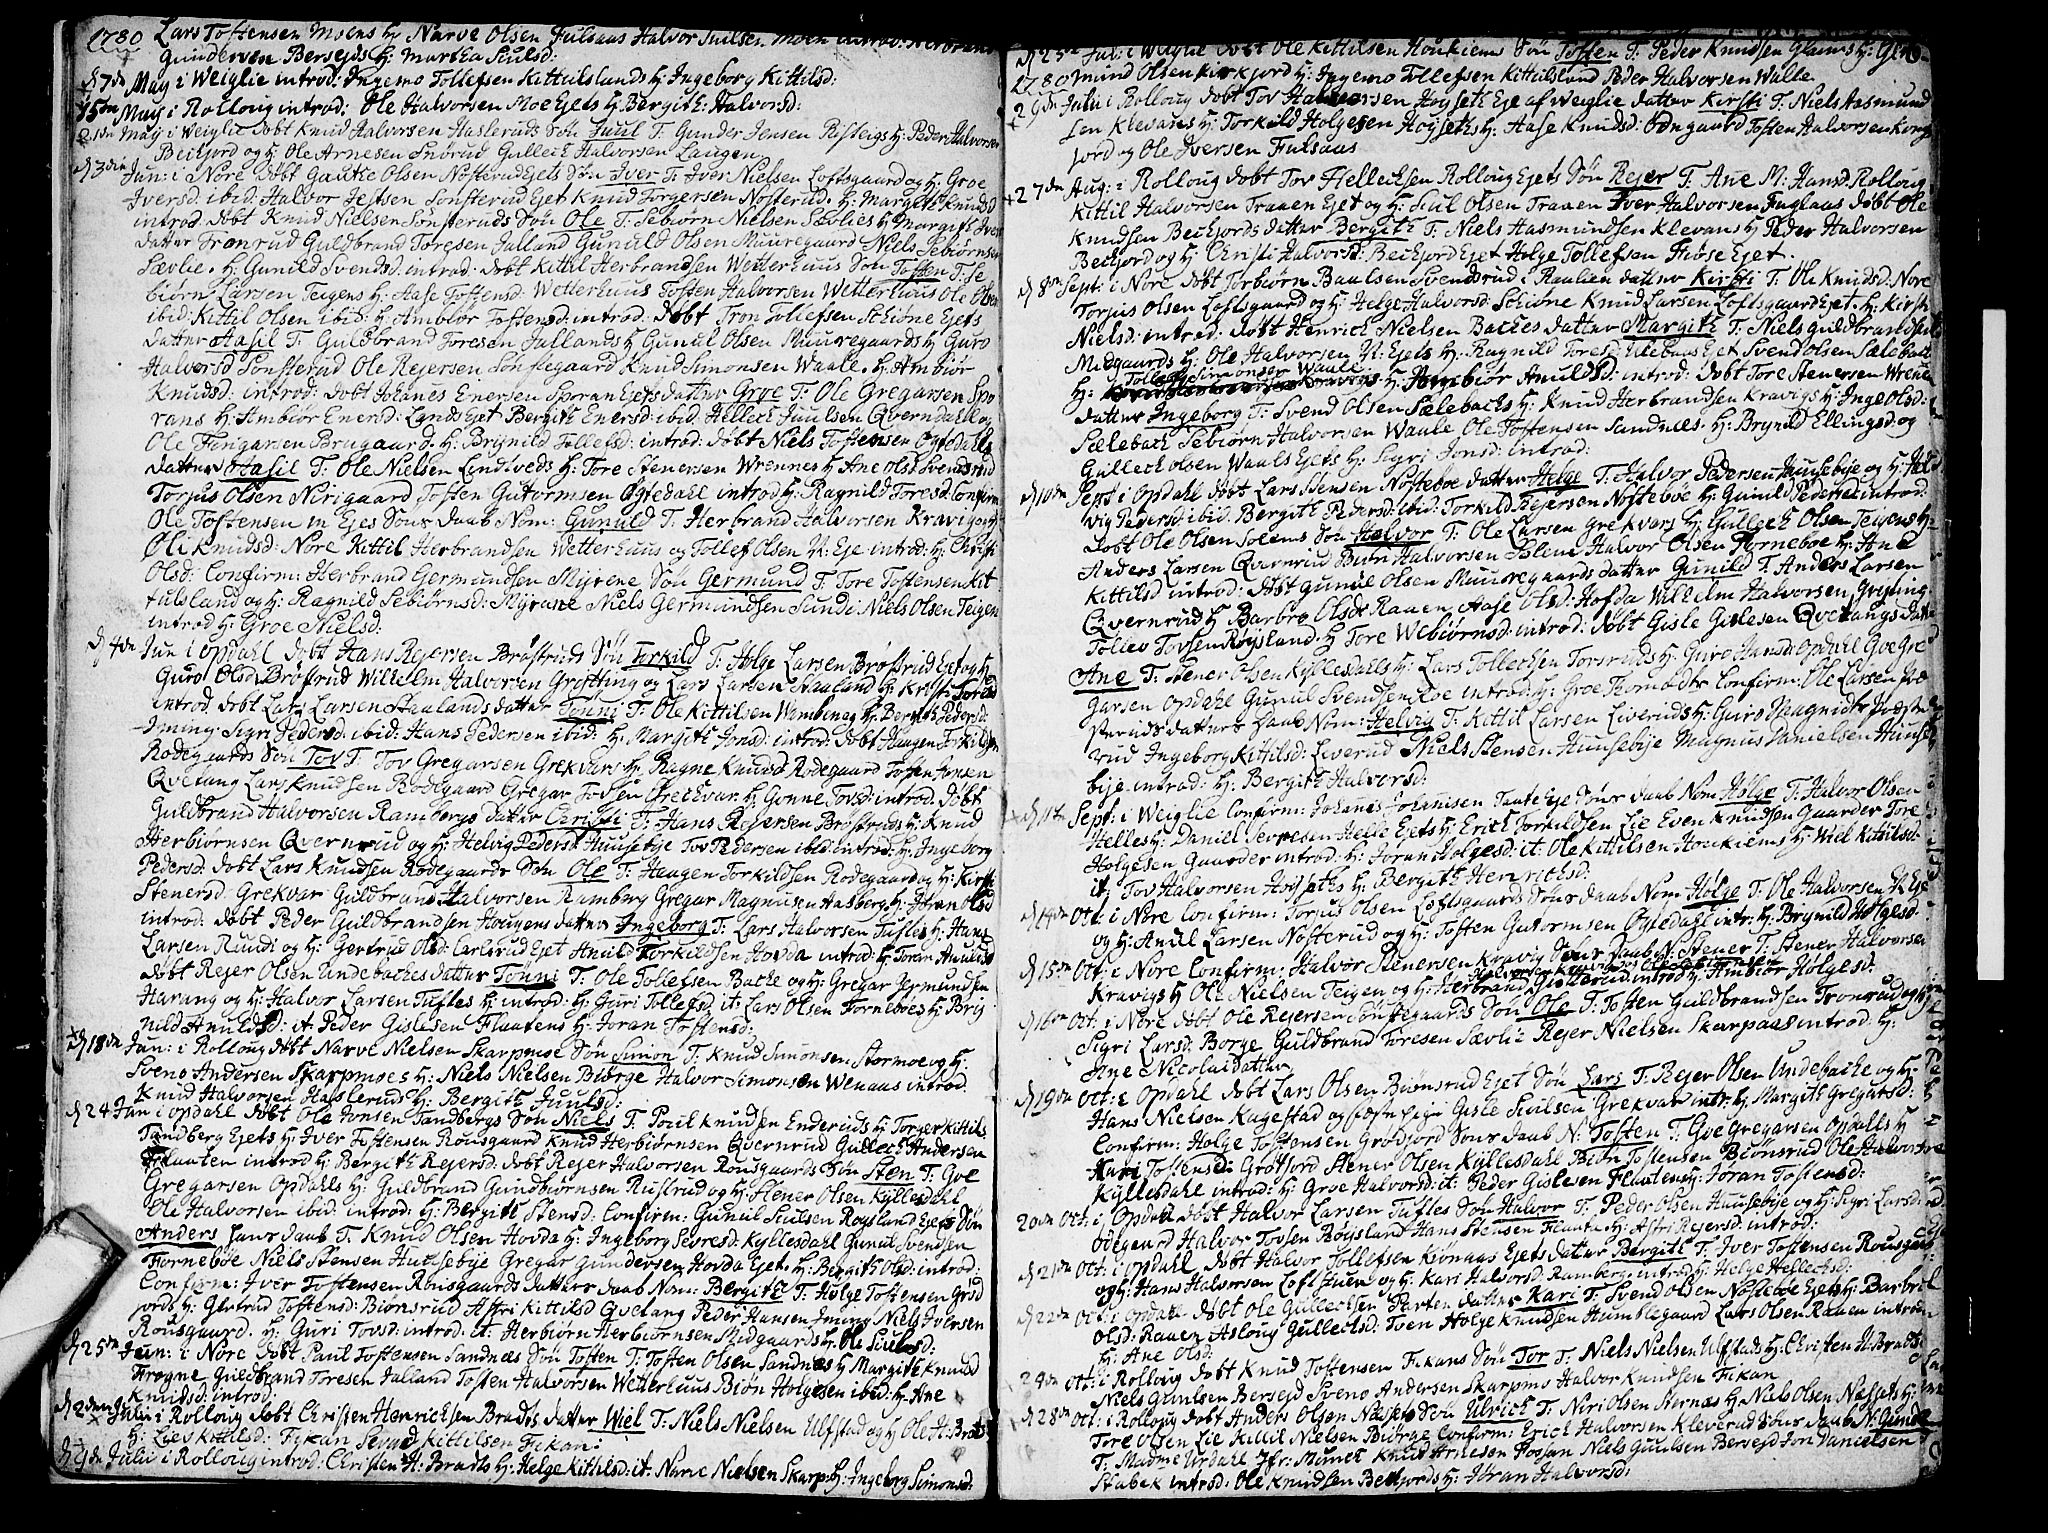 1780 Lars Toftensen Moens H: Narve Olsen Fulsaas Halvor Juilsen Moen introd: Herbrand
Gundersen Bersejds H: Martha Siulsd:
d 7de May i Weiglie introd: Ingemo Tollefsen Kittilslands H: Ingeborg Kittilsd:
15en May i Rolloug introd: Ole Halvorsen Moe Ejets H: Bergith: Halvorsd:
21de May i Weiglie døbt Knud Halvorsen Hasleruds Søn Juul T: Gunder Jensen H: Peder Halvorsen
Beckjord og H: Ole Arnesen Snørud Gullech Halvorsen Laugen
d 3die Jun: i Nore døbt Gautke Olsen Nøsterud Ejets Søn Iver T: Iver Nielsen Loftsgaard og H: Groe
Iversd: ibid: Halvor Jensen Sønsterud Ejet Knud Torgersen Nøsterud. H: Margith Knudsd
introd: døbt Knud Nielsen Sønsteruds Søn Ole T: Sebiørn Nielsen Sævlies H: Margith Iver
datter Tronrud Guldbrand Toresen Jalland Gunuld Olsen Muuregaard Niels Sebiørnsen
Sævlie. H: Gunild Svendsd: introd: døbt Kittil Herbrandsen Wetterhuus Søn Toften T: Se
biørn Larsen Teigens H: Aase Toftensd: Wetterhuus Toften Halvorsen Wetterhuus Ole Olsen
ibid: Kittil Olsen ibid: H: Ambiør Toftensd: introd: døbt Tron Tollefsen Schiøne Ejets
datter Aasil T: Guldbrand Toresen Jallands H: Gunul Olsen Muuregaards H: Guro
Halvorsd Sønsterud Ole Rejersen Sønstegaard Knud Simonsen Waale. H: Ambiør
Knudsd: introd: døbt Johanes Enersen Sporan Ejets datter Groe T: Ole Gregarsen Spo
rans H: Simbiør Enersd: Lands Ejet Bergith Enersd: ibid: Hellech Juulsen Qverndahl og
Ole Fingarsen Brugaard. H: Brynild Tollefsd: introd: døbt Niels Toftensen Ogtedahls
datter Aasil T: Ole Nielsen Lindtveds H: Tore Stenersen Wrennes H: Ane Olsd Svendsrud
Torjus Olsen Nirigaard Toften Gutormsen Ogtedahl introd H: Ragnild Toresd: Confirm
Ole Toftensen in Ejes Søns daab Nom: Gunuld T: Herbrand Halvorsen Kravig og H:
Oli Knudsd: Nore Kittil Herbrandsen Wetterhuus og Tollef Olsen N: Eje introd: H: Christi
Olsd: Confirm: Herbrand Germundsen Myrene Søn Germund T: Tore Toftensen Kit
tilsland og H: Ragnild Sebiørnsd: Myrane Niels Germundsen Sundi: Niels Olsen Teigen
introd H: Groe Nielsd:
d 4de Jun i Opdahl døbt Hans Rejersen Brøstruds Søn Torkild T: Holge Larsen Brøstrud Ejet og H:
Guro Olsd Brøstrud Wilhelm Halvorsen Grøtting og Lars Larsen Staaland H: Kristi Torkild
introd. døbt Lars Larsen Staalands datter Tønni T: Ole Kittilsen Wambeneg H: Bergith Pedersd:
Iming: Sigri Pedersd: ibid: Hans Pedersen ibid: H: Margith Jonsd: introd: døbt Haagen Torkildsen
Rødegaards Søn Tov T: Tov Gregarsen Grekvars H: Ragne Knudsd Rødegaard Toften Jonsen
Qvetang Lars Knudsen Rødegaard Gregar Tovsen Grekvar. H: Gonne Tovsd: introd. døbt
Guldbrand Halvorsen Rambergs datter Christi T: Hans Rejersen Brøstruds H: Knud
Herbiørnsen Qvernrud og H: Helvig Pedersd Huusebye Tov Pedersen ibid introd: H: Ingeborg
Pedersd: døbt Lars Knudsen Rødegaards Søn Ole T: Haagen Torkildsen Rødegaard og H: Kirsti
Stenersd: Grekvar Guldbrand Halvorsen Ramberg Gregar Magnusen Aasberg H: Jøran Olsd
introd: døbt Peder Guldbrandsen Hougens datter Ingeborg T: Lars Halvorsen Tufles H: Hans
Larsen Ruudi og H: Gertrud Olsd: Carlsrud Ejet Anuld Torkildsen Hovda introd: H: Toran Anuldsd
døbt Rejer Olsen Undebaches datter Tønni T: Ole Tollefsen Bache og H: Gregar Germundsen
Harang og H: Halvor Larsen Tufles H: introd: H: Guri Tollefsd it: Lars Olsen Forneboes H: Brig
nild Anuldsd: it: Peder Gislesen Flaatens H: Jøran Toftensd:
d 18de Jun: i Rolloug døbt Narve Nielsen Skarpmoe Søn Simon T: Knud Simonsen Stormoe og H:
Sveno Andersen Skarpmoes H: Niels Nielsen Biørge Halvor Simonsen Wenaas introd.
Knud Halvorsen Hasleruds H: Bergith Juulsd:
d 24 Jun i Opdahl døbt Ole Jonsen Tandbergs Søn Niels T: Poul Knudsen Enderuds H: Torger Kittils
Tandberg Ejets H: Iver Toftensen Rousgaard Knud Herbiørnsen Qvernrud Gullech Andersen
Flaaten introd H: Bergith Rejersd: døbt Rejer Halvorsen Rousgaards Søn Sten T: Goe
Gregarsen Opdahls H: Guldbrand Gundbiørnsen Rustrud og H: Stener Olsen Kyllesdahl
Ole Halvorsen ibid: introd: H: Bergith Stensd: Confirm: Gunul Siulsen Røysland Ejets Søn
Anders hans daab T: Knud Olsen Hovda H: Ingeborg Sevresd: Kyllesdahl Gunul Svendsen
Forneboe Niels Stensen Huusebye Gregar Gundersen Hovda Ejet. H: Bergith Olsd: introd:
Confirm: Iver Toftensen Rousgaards datters daab Nom: Bergith T: Holge Toftensen Grød
jords H: Gertrud Toftensd: Biørnsrud Astri Kittilsd Qvetang Peder Hansen Iming Niels Iversen
Rousgaard. H: Guri Tovsd: introd: it: Herbiørn Herbiørnsen Midgaards H: Ole Siulsd:
d 25de Jun: i Nore døbt Paul Toftensen Sandnæs Søn Toften T: Toften Olsen Sandnæs H: Margith Knudsd
Frøgne Guldbrand Toresen Jalland Toften Halvorsen Wetterhuus Biøn Holgesen ibid: H: Ane
Knudsd: introd:
d 2den Julii i Rolloug døbt Christen Henrichsen Bradts datter Wiel T: Niels Nielsen Ulfstad og H: Ole H: Bradts
H: Liev Kittilsd: Fikan Svend Kittilsen Fikan:
d 9de Julii i Rolloug introd: Christen H: Bradts H: Helge Kittilsd: it: Narve Nielsen Skarp H: Ingeborg Simonsd:
d 25de Juli i Weiglie døbt Ole Kittilsen Houkiems Søn Toften T: Peder Knudsen H: Ger
1780 mund Olsen Kirkjord H: Ingemo Tollefsen Kittilsland Peder Halvorsen Walle
29de Julii i Rolloug døbt Tov Halvorsen Høyseth Eje af Weiglie datter Kirsti T: Niels Aasmund
sen Klevans H: Torkild Holgesen Høyseths H: Aase Knudsd: Odngaard Toften Halvorsen Kong
jord og Ole Iversen Fulsaas
27de Aug: i Rolloug døbt Tov Hellechsen Rolloug Ejets Søn Rejer T: Ane M: Hansd: Rolloug
Kittil Halvorsen Traaen Ejet og H: Siul Olsen Traaen Iver Halvorsen Fuglaas døbt Ole
Knudsen Beckjords datter Bergith T: Niels Aasmundsen Klevans H: Peder Halvorsen
Beckjord og H: Christi Halvorsd: Beckjord Ejet Holge Tollefsen Fiøse Ejet.
d 8de Sept: i Nore døbt Torbiørn Baalsen Svendsrud i Raulien datter Kirsti T: Ole Knudsd: Nore
Torjus Olsen Loftsgaard og H: Helge Halvorsd: Schiøne Knud Larsen Loftsgaard Ejet. H: Kirsti
Nielsd: introd: døbt Henrich Nielsen Baches datter Margith T: Niels Guldbrandsen
Midgaards H: Ole Halvorsen N: Ejets H: Ragnild Toresd: Ulebaas Ejet Svend Olsen Sælebach
Tollef Simonsen Waale.
H: Ambiør Anuldsd: introd: døbt Tore Stenersen Wrenne
datter Ingeborg T: Svend Olsen Sælebachs H: Knud Herbrandsen Kravigs H: Inge Olsd:
Sælebach Sebiørn Halvorsen Waale Ole Toftensen Sandnæs. H: Brynild Ellingsd: og
Gullech Olsen Waals Ejets H: Sigri Jonsd: introd:
d 10de Sept i Opdahl døbt Lars Stensen Nøsteboe datter Helge T: Halvor Pedersen Huusebye og H: Hel
vig Pedersd: ibid: Bergith Pedersd: ibid: Torkild Rejersen Nøsteboe H: Gunild Pedersd: introd:
døbt Ole Olsen Solems Søn Halvor T: Ole Larsen Grekvars H: Gullech Olsen Teigens H:
Anders Larsen Qvernrud Biørn Halvorsen Solem Halvor Olsen Forneboe H: Ane
Kittilsd introd: døbt Gunul Olsen Muuregaards datter Gunild T: Anders Larsen
Qvernrud H: Barbro Olsdr Raaen Aase Olsd: Hofda Wilhelm Halvorsen Grøtting
Tollev Tovsen Røysland. H: Tore Webiørnsd: introd: døbt Gisle Gislesen Qvetangs datter
Ane T: Stener Olsen Kyllesdalls H: Lars Tollechsen Torsruds H: Guro Hansd: Opdahl Goe Gre
garsen Opdahl Gunul Svendsen Roe introd: H: Groe Thomædtr Confirm: Ole Larsen Præ
steruds datters daab Nom: Helvig T: Kittil Larsen Liveruds H: Guro Magnidtr Præste
rud Ingeborg Kittilsd: Liverud Niels Stensen Huusebye Magnus Danielsen Huuse
bye introd: H: Bergith Halvorsd:
d 17de Sept: i Weiglie Confirm: Johanis Johannisen Taate Eje Søns daab Nom Holge T: Halvor Olsen
Helles H: Daniel Sevresen Helle Ejets H: Erich Torkildsen Lie Even Knudsen Gaarder Tore
Holgesen Gaarder introd: H: Jøran Holgesd: it: Ole Kittilsen Houkiems H: Wiel Kittilsd:
it: Tov Halvorsen Høyseths H: Bergith Henrichsd:
d 14de Oct: i Nore Confirm: Torjus Olsen Loftsgaards Søns daab Nom Holge T: Ole Halvorsen N Eje
og H: Anul Larsen Nøsterud og H: Toften Gutormsen Ogtedahl intr: H: Brynild Holgesd:
d 15de Oct: i Nore Confirm: Halvor Stenersen Kravig Søns daab N: Stener T: Stener Halvorsen
Kravigs H: Ole Nielsen Teigen og H: Herbrand Gisterud introd H: Ambiør Holgesd:
d 16de Oct: i Nore døbt Ole Rejersen Sønstegaards Søn Ole T: Toften Guldbrandsen Tronrud og H:
Sigri Larsd: Borge Guldbrand Toresen Sævlie Rejer Nielsen Skarpaas introd: H:
Ane Nicolaidatter
d 19de Oct: i Opdahl døbt Lars Olsen Biørnsrud Ejet Søn Lars T: Rejer Olsen Undebache og H:
Hans Nielsen Kagestad og Gisle Siulsen Grekvar intr: H: Margith Gregarsd:
Confirm: Holge Toftensen Grødjord Søns daab N: Toften T: Goe Gregarsen Opdalls H:
Kari Toftensd: Grøtjord Stener Olsen Kyllesdahl Biøn Toftensen Biønsrud Ole Halvors
Kyllesdahl introd: H: Groe Halvorsd: it: Peder Gislesen Flaatens H: Jøran Toftensd:
20de Oct: i Opdahl døbt Halvor Larsen Tufles Søn Halvor T: Peder Olsen Huusebye og H: Sigri Larsd:
Ødegaard Halvor Tovsen Røysland Hans Stensen Flaata H: Astri Rejersd: introd:
d 21de Oct: i Opdahl døbt Halvor Tollefsen Kiønaas Ejets datter Bergith T: Iver Toftensen Rousgaar
og H: Hans Halvorsen Loftstuen og H: Kari Halvorsd: Ramberg introd H: Helge Hellechsd:
d 22de Oct: i Opdahl døbt Ole Gullechsen Parten datter Kari T: Svend Olsen Nøsteboe Ejets H: Barbro
Olsd: Raaen Asloug Gullechsd: Toen Holge Knudsen Humblegaard Lars Olsen Raaen introd
H: Ane Olsd:
24de Oct: i Rolloug døbt Knud Toftensen Fikans Søn Tor T: Niels Nielsen Ulfstads H: Christen H: Bradts
Niels Guulsen Bersejd Sveno Andersen Skarpmo Halvor Knudsen Fikan
d 28de Oct: i Rolloug døbt Anders Olsen Næsets Søn Ulrich T: Niri Olsen Sternæs H: Niels Olsen Næssets H:
Tore Olsen Lie Killil Nielsen Biørge Confirm: Erich Halvorsen Kleverud Søns daab N: Gunde
T: Madme Urdahl Jfr: Munch Knud Arnesen Fossan Niels Guulsen Bersejd Jon Danielsen
Stabek introd: Ole Knudsen Beckjords H: Jøran Halvorsd: